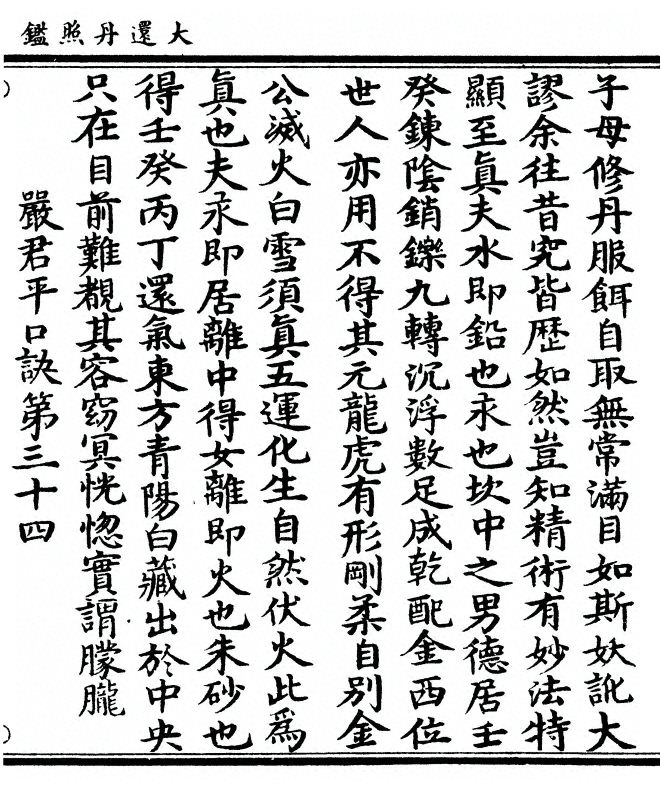 大還丹照鑑
子母修丹服餌自取無常滿目如斯妖訛大
謬余往昔究皆歷如然豈知精術有妙法特
顯至眞夫水即鉛也汞也坎中之男德居壬
癸鍊陰銷鑠九轉沉浮數足成乾配金西位
世人亦用不得其元龍虎有形剛柔自別金
公滅火白雪須眞五運化生自然伏火此爲
眞也夫汞即居離中得女離即火也朱砂也
得壬癸丙丁還氣東方青陽白藏出於中央
只在目前難覩其容窈冥恍惚實謂朦朧
嚴君平口訣第三十四